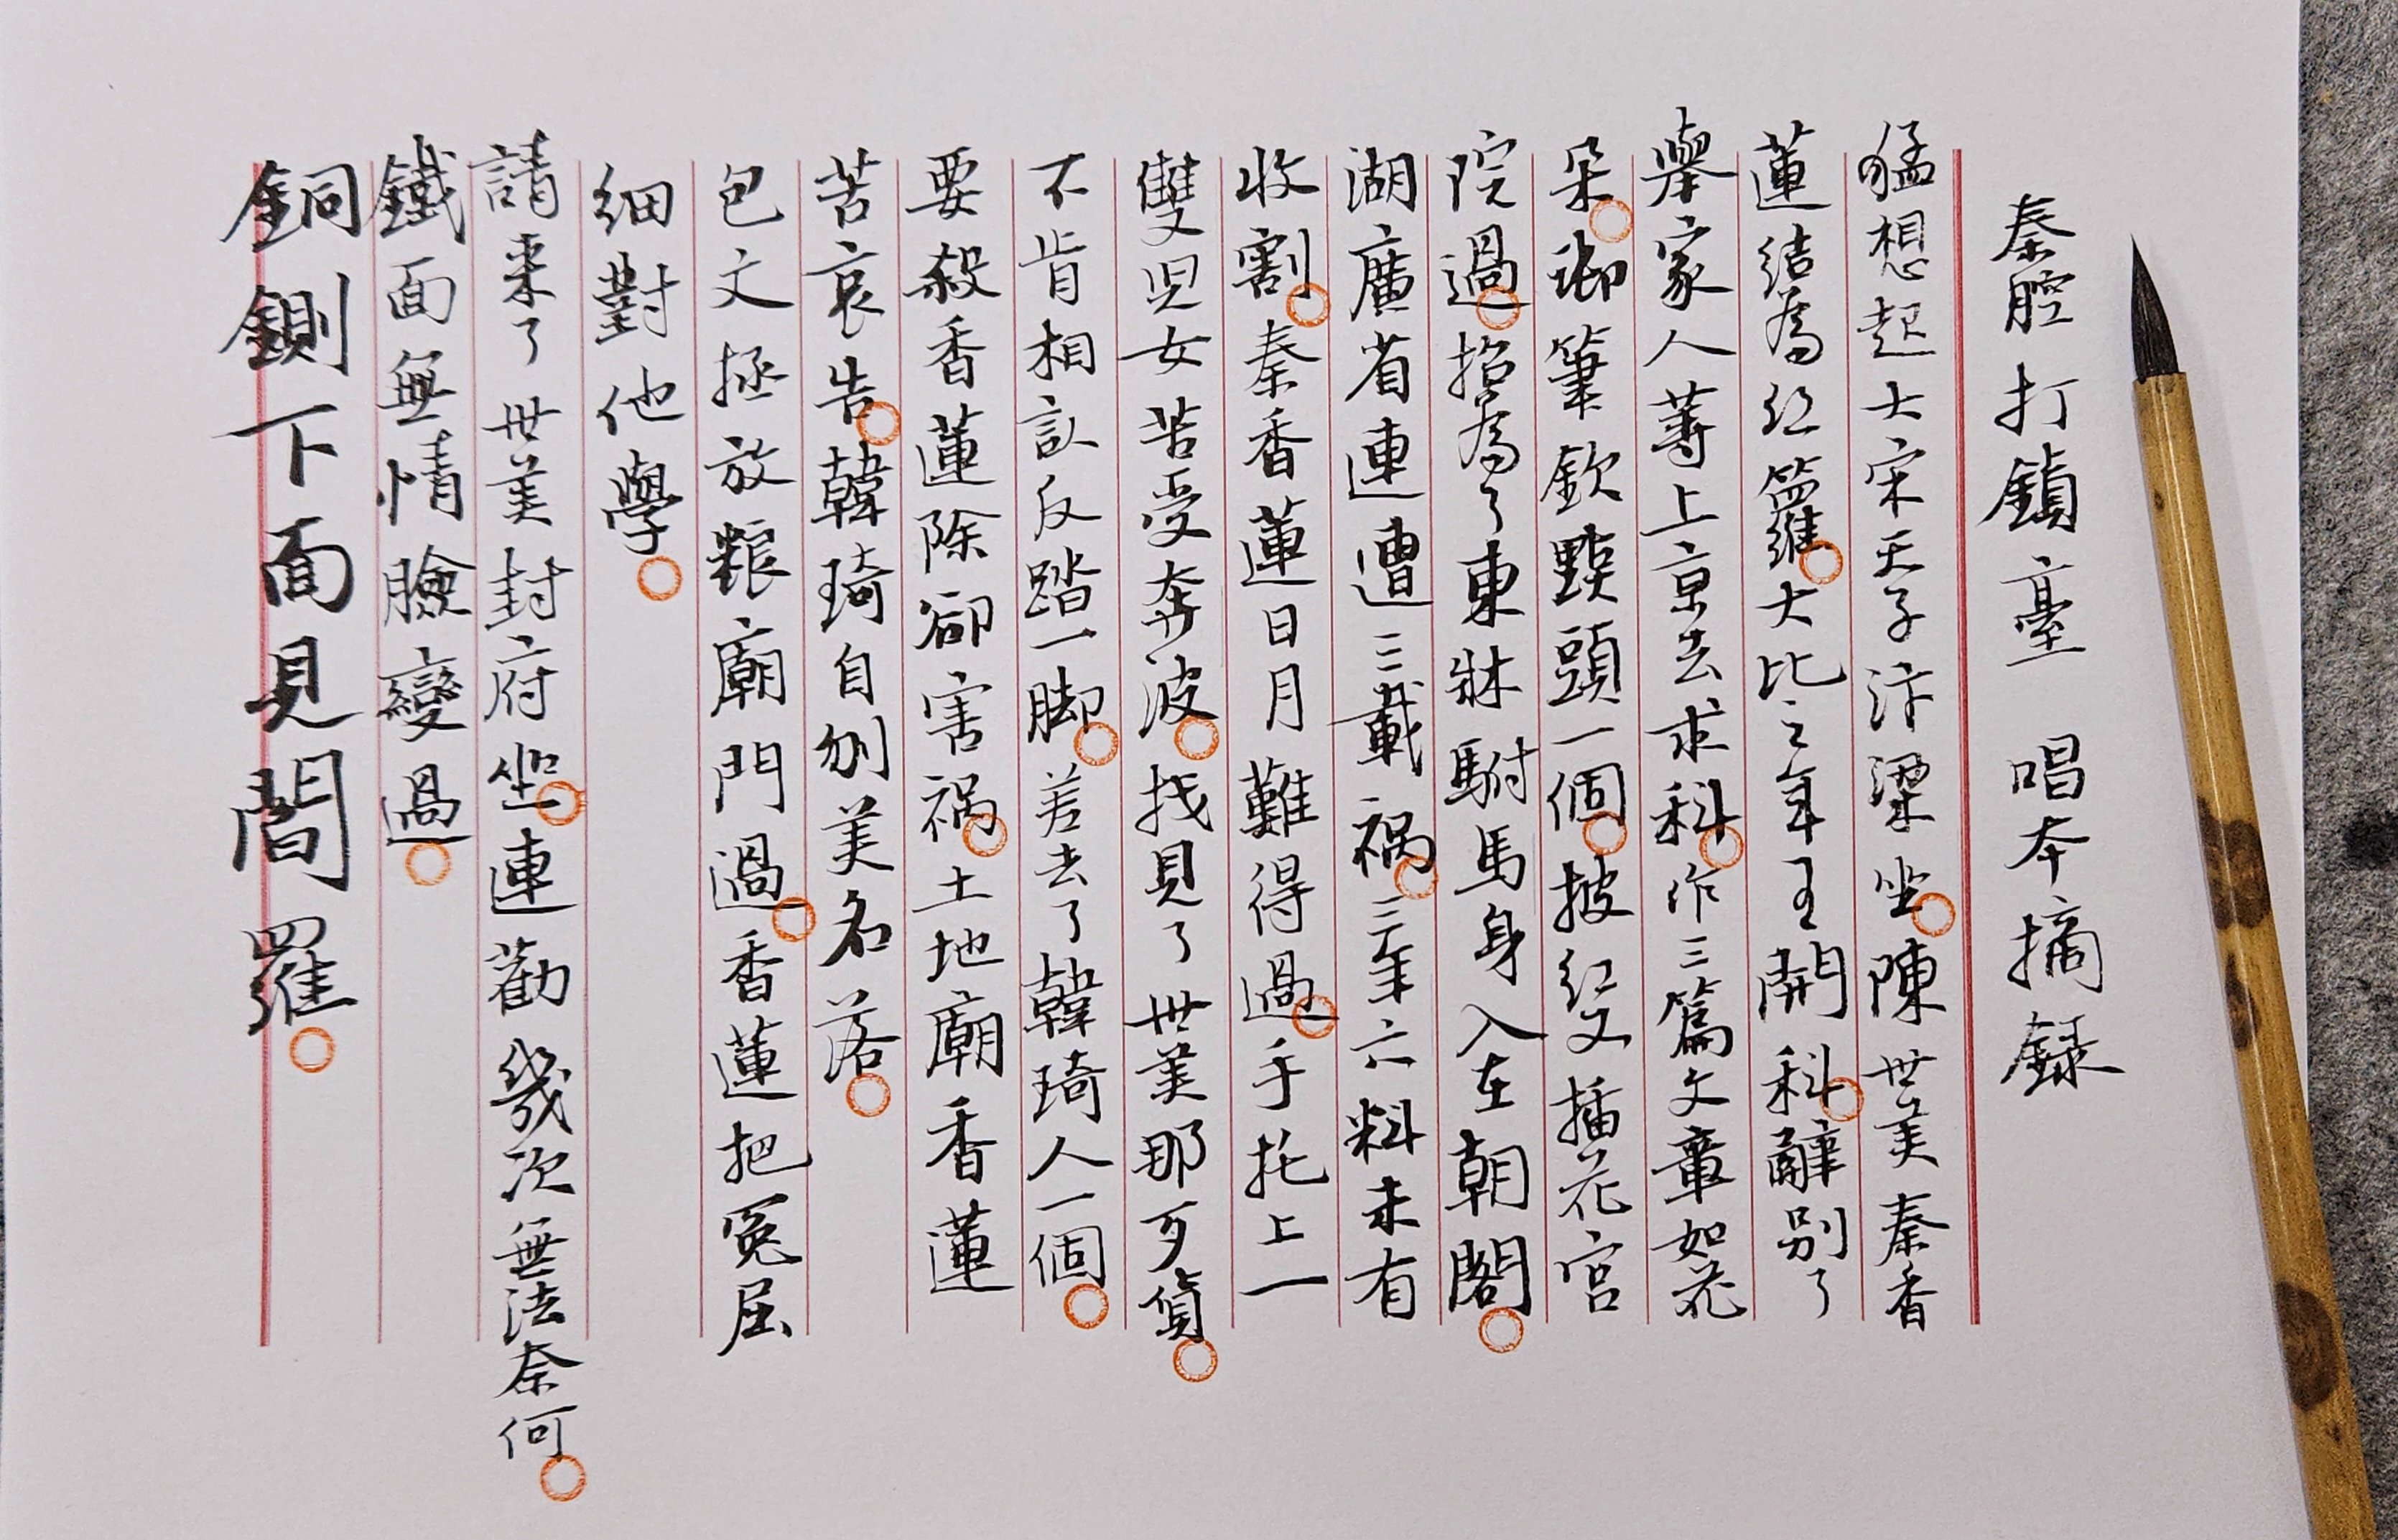 秦腔打鎮臺 唱本摘録
猛想起大宋天子汴梁坐。陳世美秦香
蓮結為红籮。大比之年王開科。辭別了
舉家人等上京去求科。作三篇文章如花
朵。御筆欽點頭一個。披红又插花宫
院過。招為了東牀駙馬身入在朝閣。
湖廣省連遭三載禍。三年六料未有
收割。秦香蓮日月難得過。手托上一
雙児女苦受奔波。找見了世美那歹貨。
不肯相認反踏一脚。差去了韓琦人一個。
要殺香蓮除卻害禍。土地廟香蓮
苦哀告。韓琦自刎美名落。
包文拯放粮廟門過。香蓮把冤屈
細對他學。
請來了世美封府坐。連勸幾次無法奈何。
鐵面無情臉變過。
銅鍘下面見閻羅。